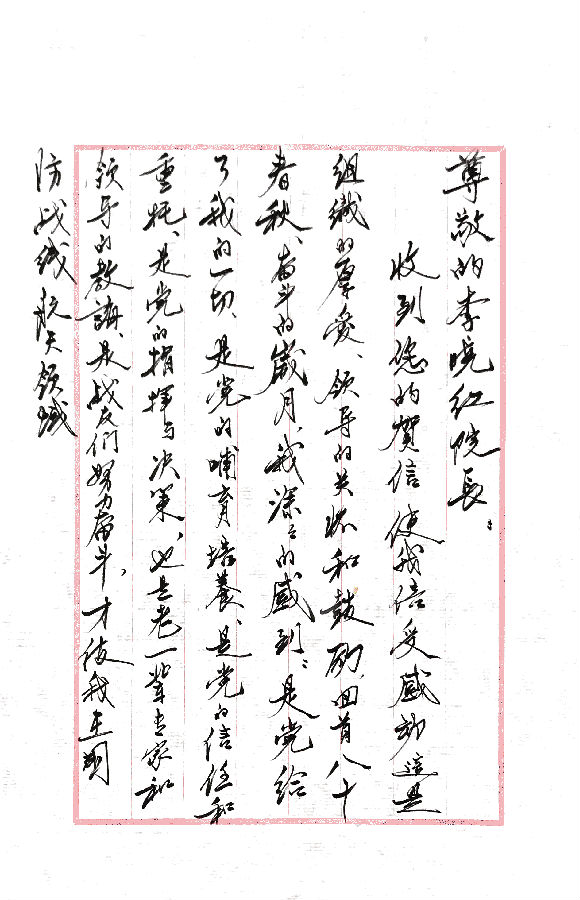 尊敬的李晓红院長：
收到您的贺信使我倍受感动这是
组織的厚愛、领导的关怀和鼓励,回首八十
春秋、奋斗的歲月,我深深的感到：是党给
了我的一切、是党的哺育培養、是党的信任和
重托、是党的指挥与决策，也是老一辈专家和
领导的教誨、是战友们努力奋斗，才使我在国
防战线航天领域